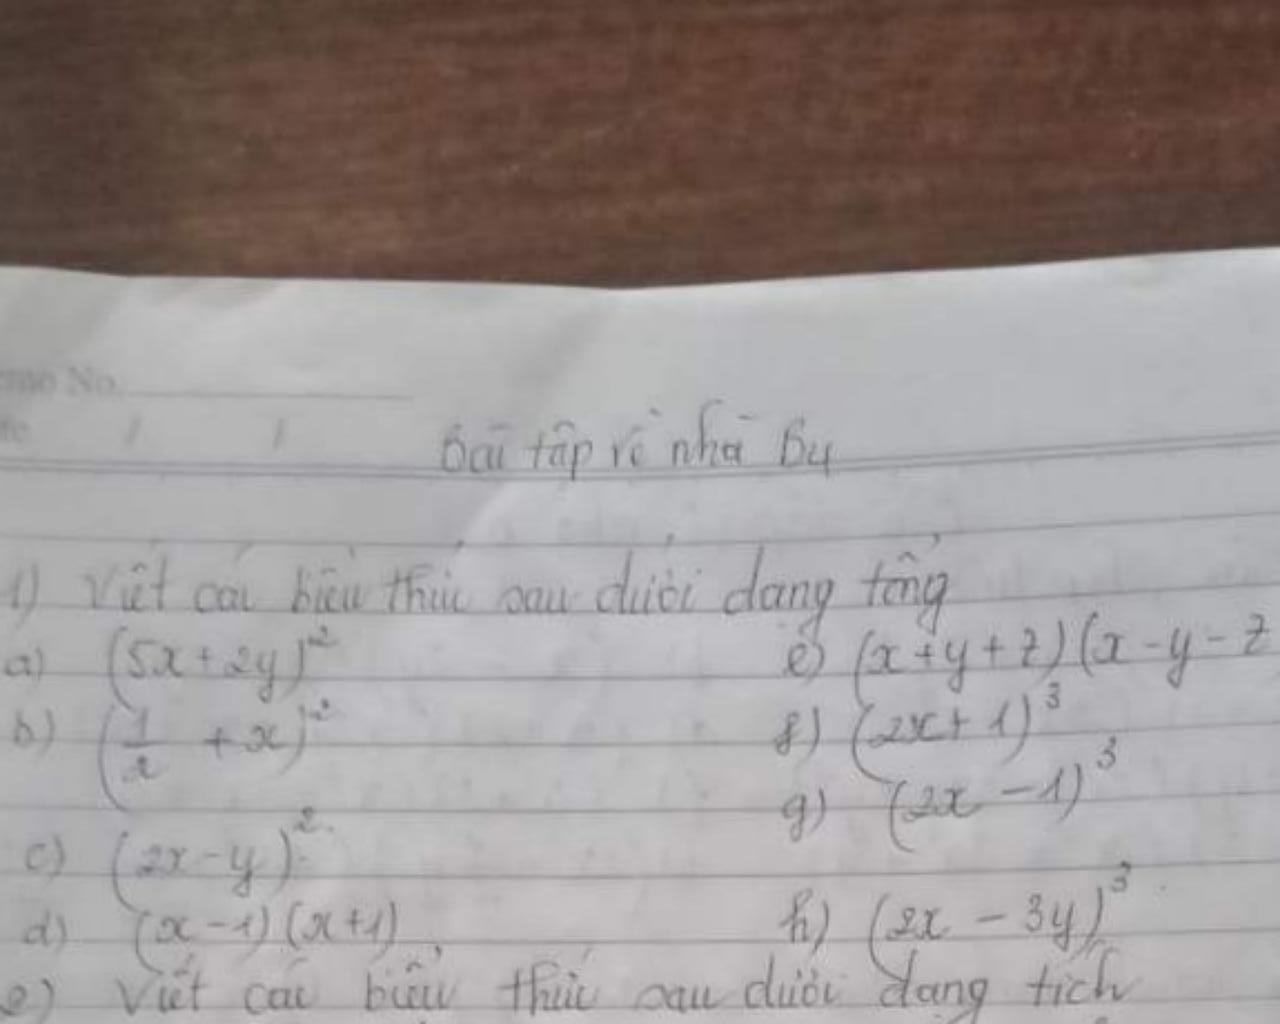 Memo No.
Date / /
Bài tập về nhà B4
1) Viết các biểu thức sau dưới dạng tổng
a) (5x + 2y)² e) (x + y + z)(x - y - z
b) (1/2 + x)² f) (2x + 1)³
g) (2x - 1)³
c) (2x - y)²
d) (x - 1)(x + 1) h) (2x - 3y)³
2) Viết các biểu thức sau dưới dạng tích